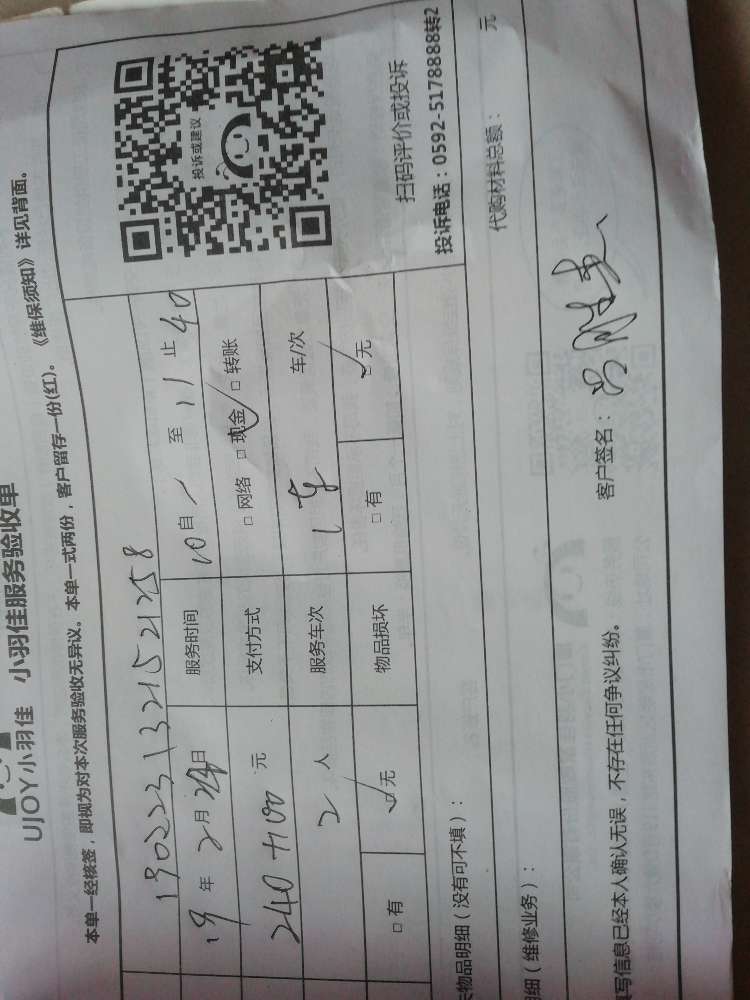 UJOY小羽佳 小羽佳服务验收单
本单一经核签，即视为对本次服务验收无异议。本单一式两份，客户留存一份(红)。《维保须知》详见背面。
190223132152 1258
19 年 2 月 日 服务时间 10 自 至 11 止 40
240+100 元 支付方式 □ 网络 □ 现金 □ 转账
2 人 服务车次 1 车 车/次
□ 有 □ 无 物品损坏 □ 有 □ 无
投诉或建议
扫码评价或投诉
投诉电话：0592-5178888转2
物品明细（没有可不填）：
代购材料总额： 元
细（维修业务）：
写信息已经本人确认无误，不存在任何争议纠纷。 客户签名：